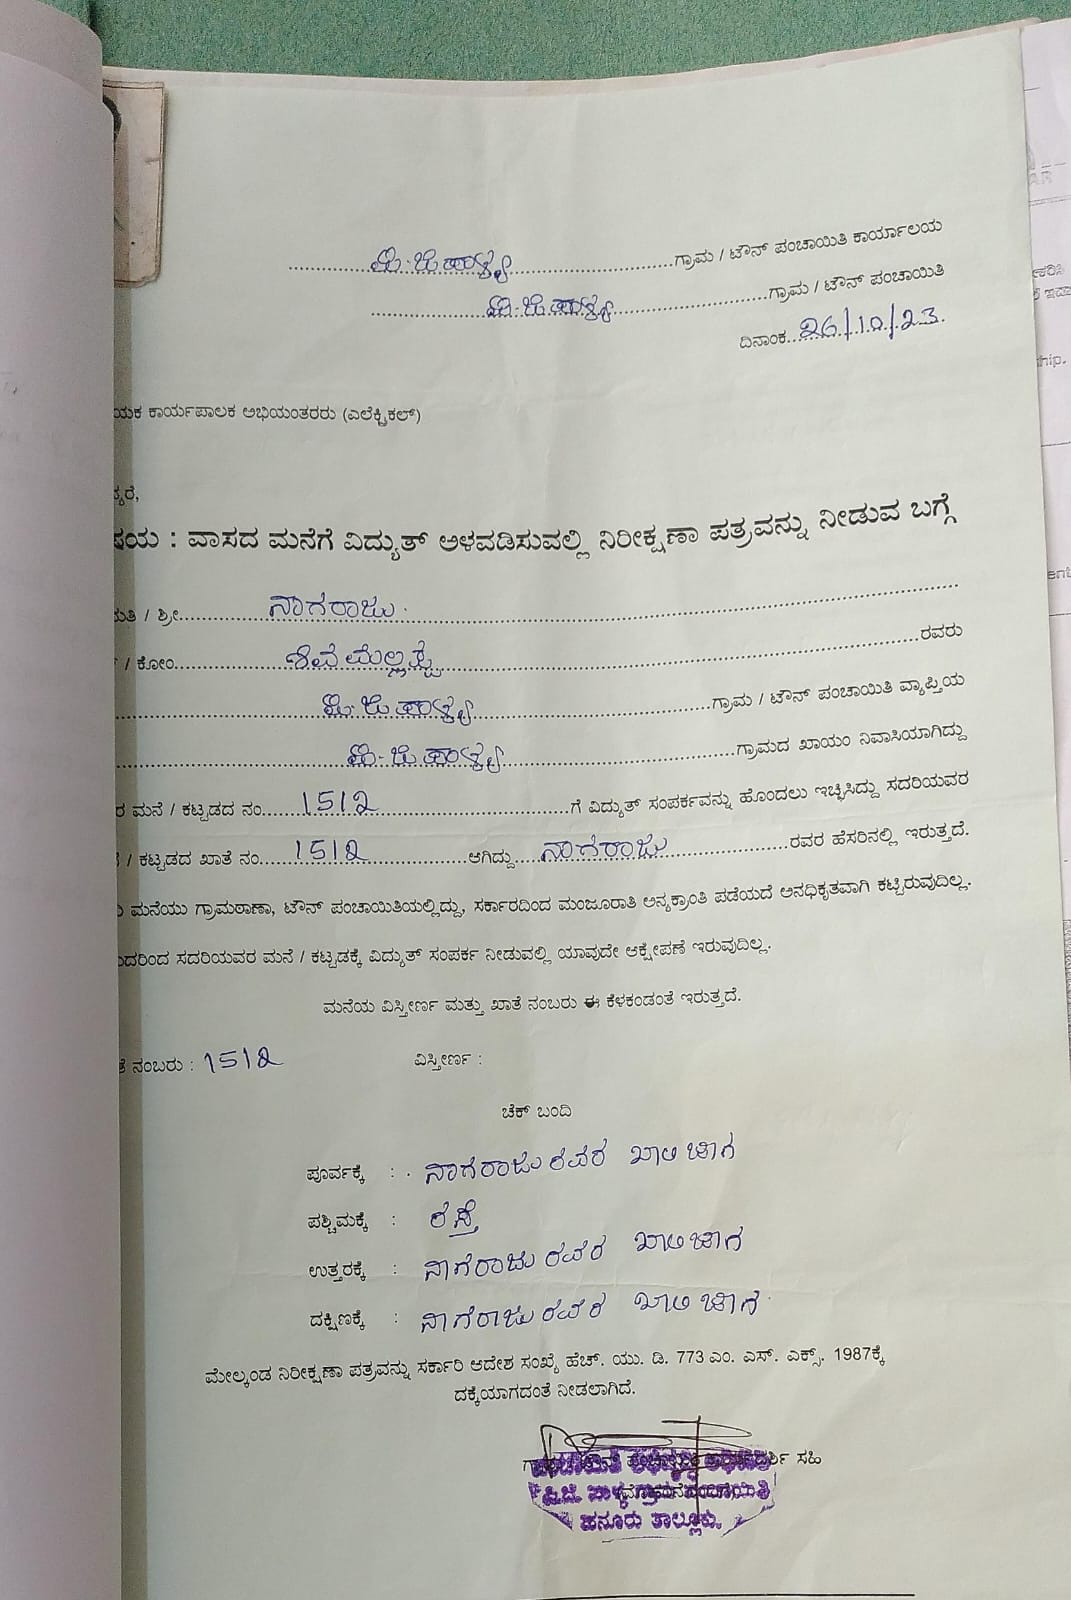 ಪಿ.ಜಿ ಪಾಳ್ಯ ಗ್ರಾಮ / ಟೌನ್ ಪಂಚಾಯಿತಿ ಕಾರ್ಯಾಲಯ
ಪಿ.ಜಿ ಪಾಳ್ಯ ಗ್ರಾಮ / ಟೌನ್ ಪಂಚಾಯಿತಿ
ದಿನಾಂಕ 26/10/23
ಯಕ ಕಾರ್ಯಪಾಲಕ ಅಭಿಯಂತರರು (ಎಲೆಕ್ಟ್ರಿಕಲ್)
ನ್ಯರೆ,
ಷಯ : ವಾಸದ ಮನೆಗೆ ವಿದ್ಯುತ್ ಅಳವಡಿಸುವಲ್ಲಿ ನಿರೀಕ್ಷಣಾ ಪತ್ರವನ್ನು ನೀಡುವ ಬಗ್ಗೆ
ಮತಿ / ಶ್ರೀ ನಾಗರಾಜು
/ ಕೋಂ ರವರು
ಪಿ.ಜಿ ಪಾಳ್ಯ ಗ್ರಾಮ / ಟೌನ್ ಪಂಚಾಯಿತಿ ವ್ಯಾಪ್ತಿಯ
ಪಿ.ಜಿ ಪಾಳ್ಯ ಗ್ರಾಮದ ಖಾಯಂ ನಿವಾಸಿಯಾಗಿದ್ದು
ರ ಮನೆ / ಕಟ್ಟಡದ ನಂ. 1512 ಗೆ ವಿದ್ಯುತ್ ಸಂಪರ್ಕವನ್ನು ಹೊಂದಲು ಇಚ್ಛಿಸಿದ್ದು ಸದರಿಯವರ
/ ಕಟ್ಟಡದ ಖಾತೆ ನಂ. 1512 ಆಗಿದ್ದು ನಾಗರಾಜು ರವರ ಹೆಸರಿನಲ್ಲಿ ಇರುತ್ತದೆ.
ಮನೆಯು ಗ್ರಾಮಠಾಣಾ, ಟೌನ್ ಪಂಚಾಯಿತಿಯಲ್ಲಿದ್ದು, ಸರ್ಕಾರದಿಂದ ಮಂಜೂರಾತಿ ಅನ್ಯಕ್ರಾಂತಿ ಪಡೆಯದೆ ಅನಧಿಕೃತವಾಗಿ ಕಟ್ಟಿರುವುದಿಲ್ಲ.
ದರಿಂದ ಸದರಿಯವರ ಮನೆ / ಕಟ್ಟಡಕ್ಕೆ ವಿದ್ಯುತ್ ಸಂಪರ್ಕ ನೀಡುವಲ್ಲಿ ಯಾವುದೇ ಆಕ್ಷೇಪಣೆ ಇರುವುದಿಲ್ಲ.
ಮನೆಯ ವಿಸ್ತೀರ್ಣ ಮತ್ತು ಖಾತೆ ನಂಬರು ಈ ಕೆಳಕಂಡಂತೆ ಇರುತ್ತದೆ.
ತೆ ನಂಬರು : 1512 ವಿಸ್ತೀರ್ಣ :
ಚೆಕ್ ಬಂದಿ
ಪೂರ್ವಕ್ಕೆ : ನಾಗರಾಜು ರವರ ಖಾಲಿ ಜಾಗ
ಪಶ್ಚಿಮಕ್ಕೆ : ರಸ್ತೆ
ಉತ್ತರಕ್ಕೆ : ನಾಗರಾಜು ರವರ ಖಾಲಿ ಜಾಗ
ದಕ್ಷಿಣಕ್ಕೆ : ನಾಗರಾಜು ರವರ ಖಾಲಿ ಜಾಗ
ಮೇಲ್ಕಂಡ ನಿರೀಕ್ಷಣಾ ಪತ್ರವನ್ನು ಸರ್ಕಾರಿ ಆದೇಶ ಸಂಖ್ಯೆ ಹೆಚ್. ಯು. ಡಿ. 773 ಎಂ. ಎಸ್. ಎಕ್ಸ್. 1987ಕ್ಕೆ
ದಕ್ಕೆಯಾಗದಂತೆ ನೀಡಲಾಗಿದೆ.
ಸಹಿ
ಪಿ.ಜಿ. ಪಾಳ್ಯ
ಹನೂರು ತಾಲ್ಲೂಕು.